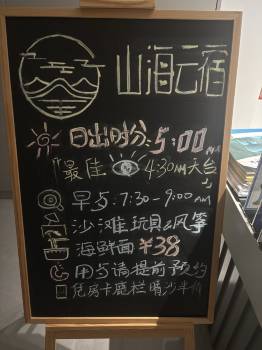 山海云宿
日出时分:5:00
最佳 4:30AM天台
早与:7:30-9:00AM
沙滩玩具&风筝
海鲜面 ¥38
用与请提前预约
房卡